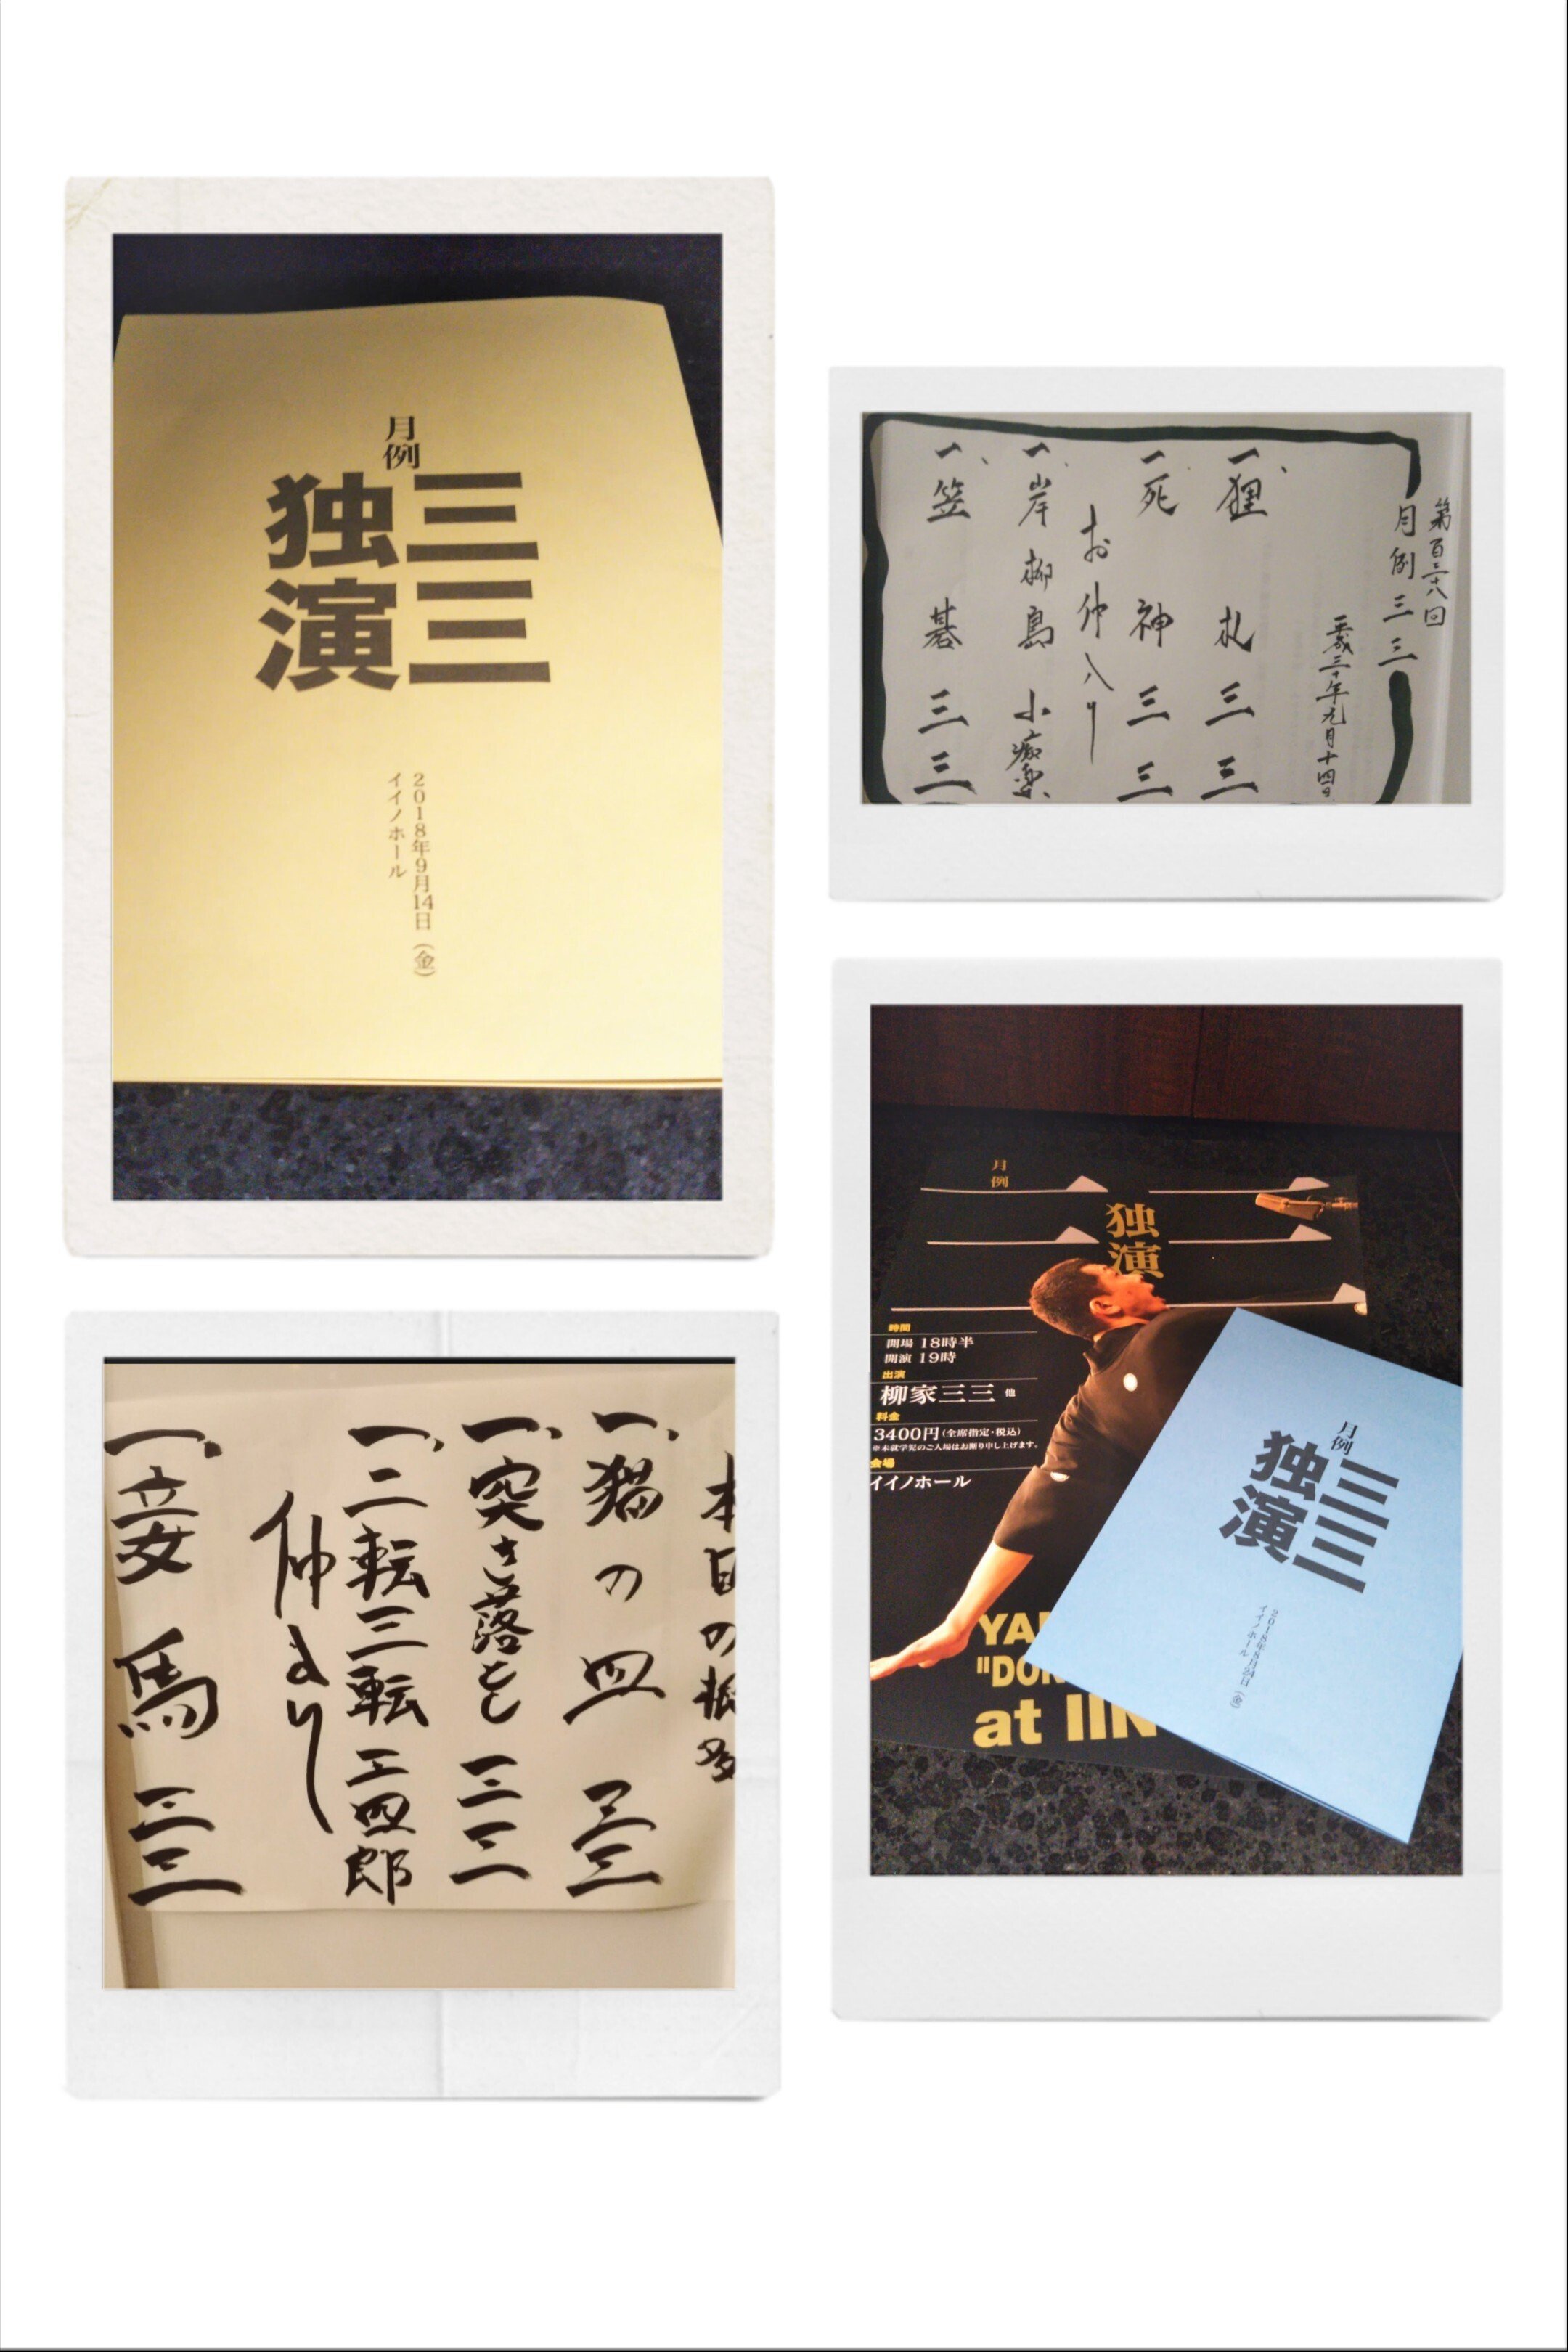 月例
三三
独演
2018年9月14日（金）
イイノホール
第百三十八回
月例三三
平成三十年九月十四日
一、狸札 三三
一、死神 三三
お仲入り
一、岸柳島 小痴楽
一、笠碁 三三
月例
独演
時間
開場 18時半
開演 19時
出演
柳家三三 他
料金
3400円(全席指定・税込)
※未就学児のご入場はお断り申し上げます。
会場
イイノホール
YA
"DO
at IIN
月例
三三
独演
2018年8月24日（金）
イイノホール
本日の
一、猫の皿 三三
一、突き落とし 三三
一、二転三転 工四郎
仲より
一、妾馬 三三